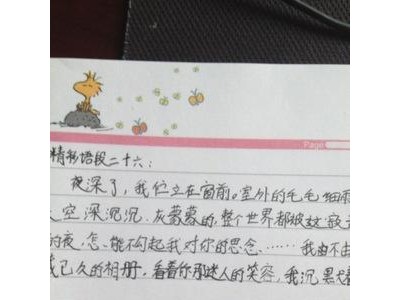 Page
精彩语段二十六:
夜深了，我伫立在窗前。室外的毛毛细雨
空深沉沉.灰蒙蒙的,整个世界都被这寂
的夜,怎.能不勾起我对你的思念、……我由不由
已久的相册,看着你那迷人的笑容,我沉默